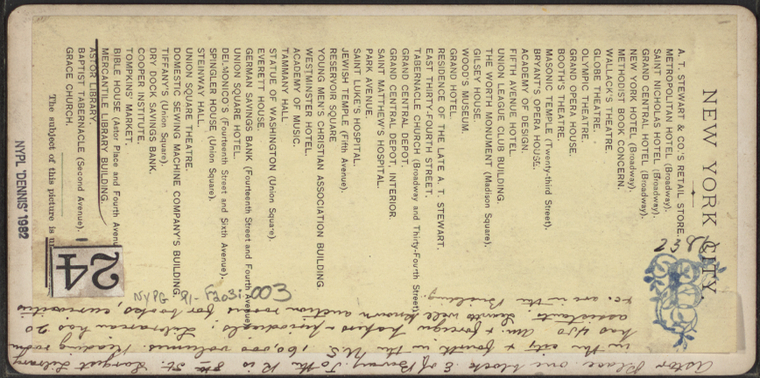 NEW YORK CITY.
A. T. STEWART & CO'S RETAIL STORE.
METROPOLITAN HOTEL (Broadway).
SAINT NICHOLAS HOTEL (Broadway).
GRAND CENTRAL HOTEL (Broadway).
NEW YORK HOTEL (Broadway).
METHODIST BOOK CONCERN.
WALLACK'S THEATRE.
GLOBE THEATRE.
OLYMPIC THEATRE.
GRAND OPERA HOUSE.
BOOTH'S THEATRE.
MASONIC TEMPLE (Twenty-third Street).
BRYANT'S OPERA HOUSE.
ACADEMY OF DESIGN.
FIFTH AVENUE HOTEL.
UNION LEAGUE CLUB BUILDING.
THE WORTH MONUMENT (Madison Square).
GILSEY HOUSE.
WOOD'S MUSEUM.
GRAND HOTEL.
RESIDENCE OF THE LATE A. T. STEWART.
EAST THIRTY-FOURTH STREET.
TABERNACLE CHURCH (Broadway and Thirty-Fourth Street)
GRAND CENTRAL DEPOT.
GRAND CENTRAL DEPOT, INTERIOR.
SAINT MATTHEW'S HOSPITAL.
PARK AVENUE.
SAINT LUKE'S HOSPITAL.
JEWISH TEMPLE (Fifth Avenue).
RESERVOIR SQUARE
YOUNG MEN'S CHRISTIAN ASSOCIATION BUILDING.
WESTMINSTER HOTEL.
ACADEMY OF MUSIC.
TAMMANY HALL
STATUE OF WASHINGTON (Union Square)
EVERETT HOUSE.
GERMAN SAVINGS BANK (Fourteenth Street and Fourth Avenue)
UNION SQUARE HOTEL.
DELMONICO'S (Fourteenth Street and Sixth Avenue).
SPINGLER HOUSE (Union Square).
STEINWAY HALL.
UNION SQUARE THEATRE.
DOMESTIC SEWING MACHINE COMPANY'S BUILDING.
TIFFANY'S (Union Square).
DRY DOCK SAVINGS BANK.
COOPER INSTITUTE.
TOMPKINS' MARKET.
BIBLE HOUSE (Astor Place and Fourth Avenu
MERCANTILE LIBRARY BUILDING.
ASTOR LIBRARY.
BAPTIST TABERNACLE (Second Avenue).
GRACE CHURCH.
The subject of this picture is u
24
NYPL 'DENNIS' 1982
NYPG '91- F203: 003
Astor Place one block E of Broway. To the R is 8th St. Largest Library
in the city & fourth in the U.S. 160,000 volumes Reading room
has 450 Am & foreign papers & periodicals; Librarian has 20
assistants. Leavitt's well known auction rooms for books, curiosities
&c. are in the Building